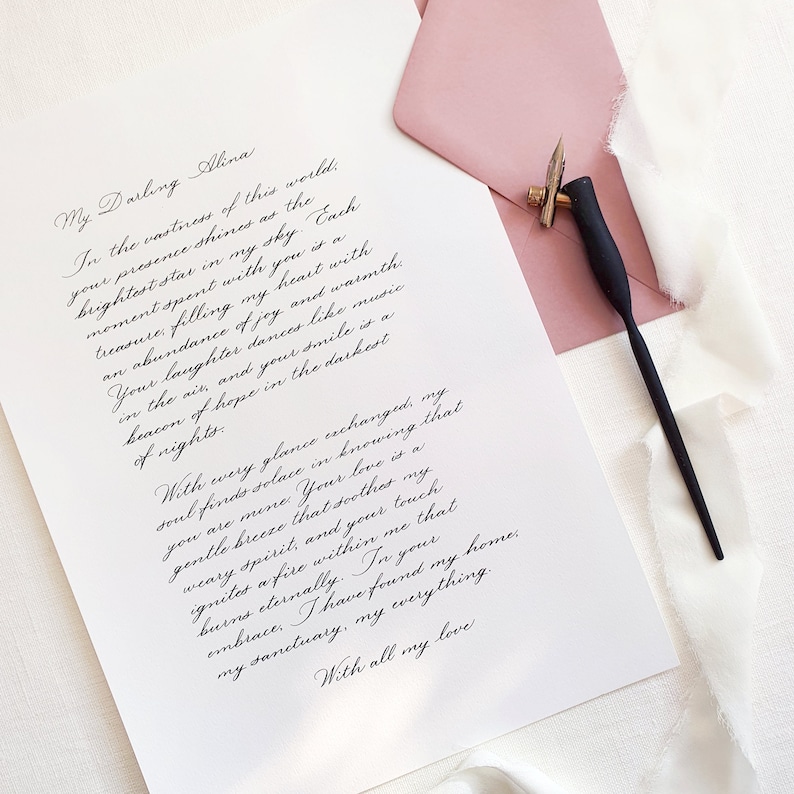 My Darling Alina
In the vastness of this world,
your presence shines as the
brightest star in my sky. Each
moment spent with you is a
treasure, filling my heart with
an abundance of joy and warmth.
Your laughter dances like music
in the air, and your smile is a
beacon of hope in the darkest
of nights.
With every glance exchanged, my
soul finds solace in knowing that
you are mine. Your love is a
gentle breeze that soothes my
weary spirit, and your touch
ignites a fire within me that
burns eternally. In your
embrace, I have found my home,
my sanctuary, my everything.
With all my love